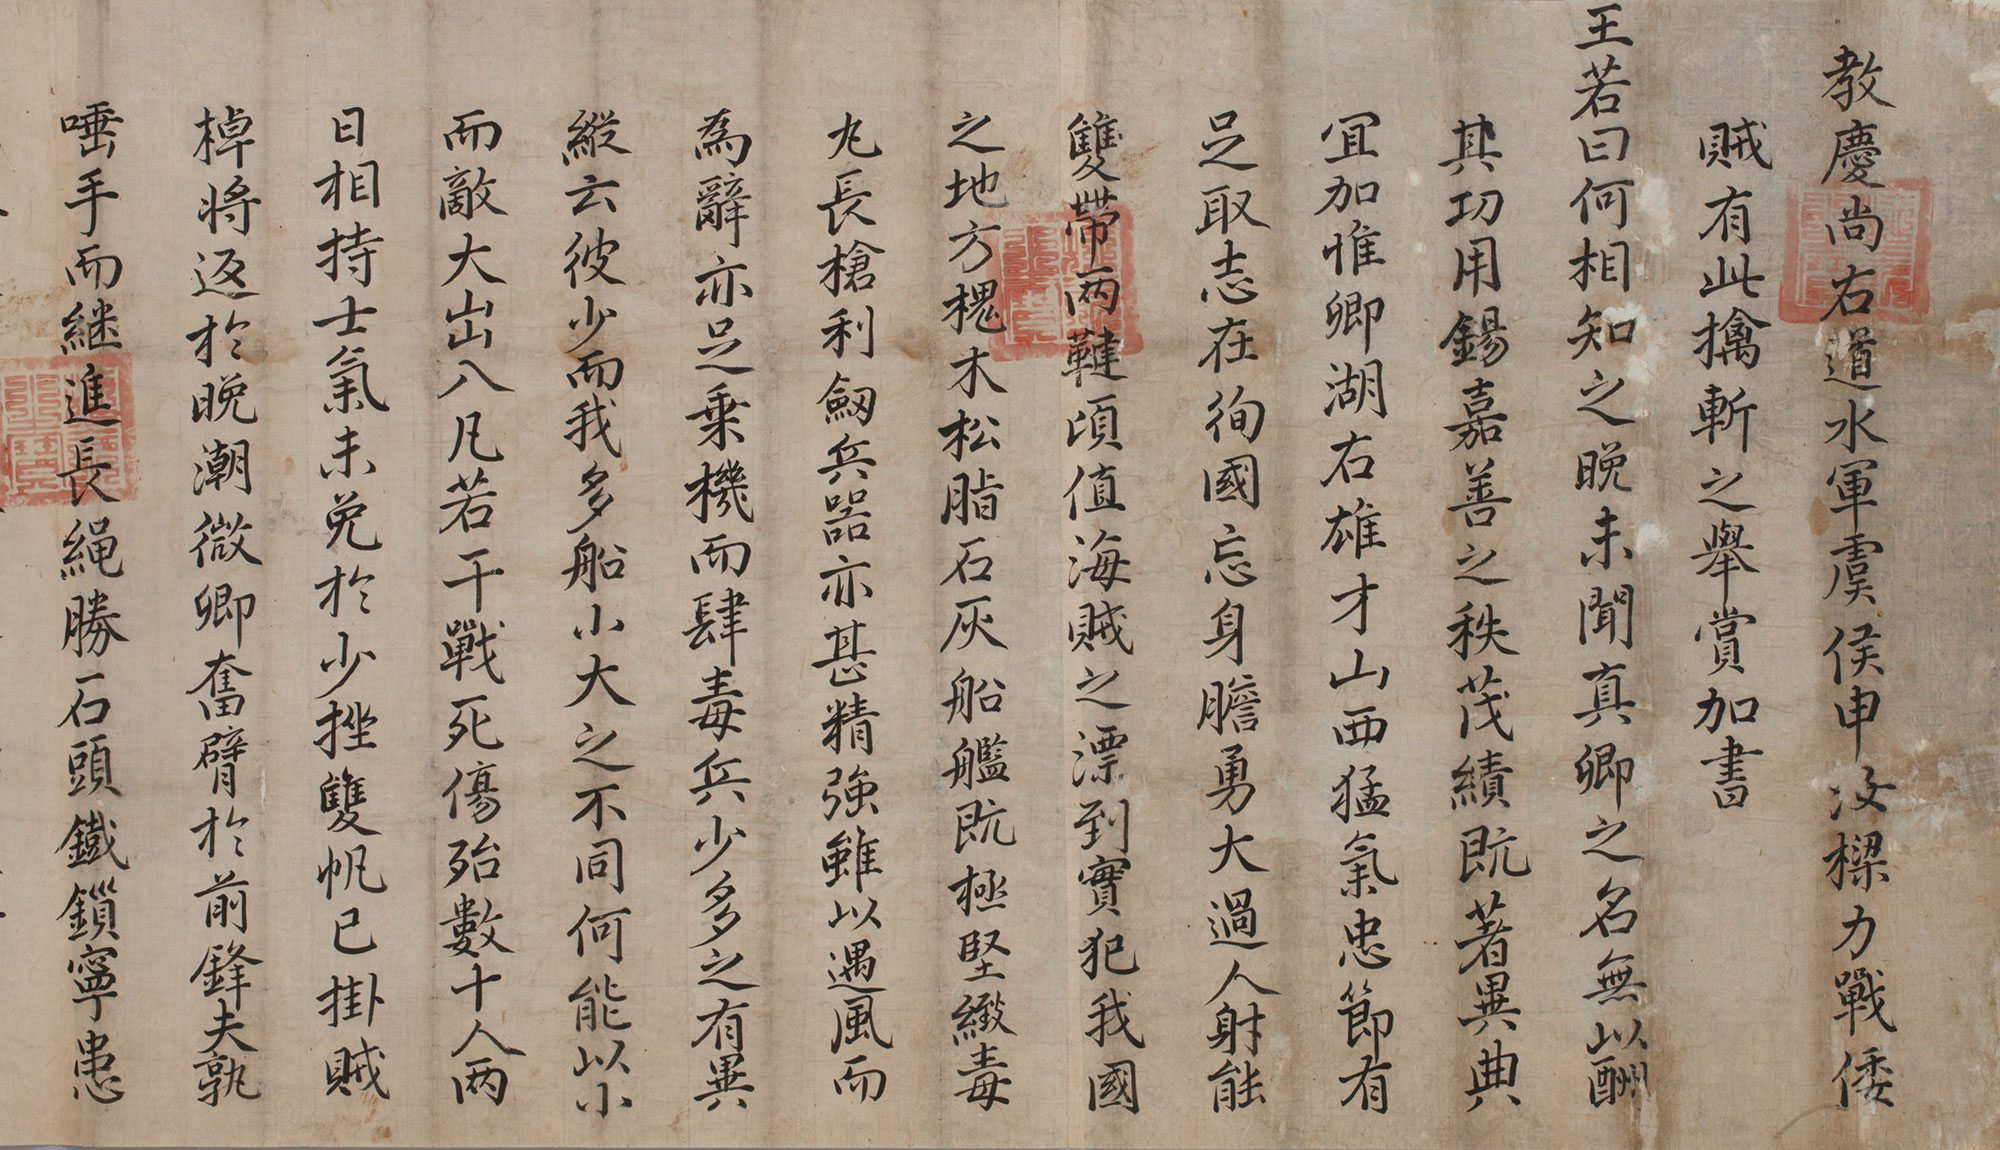 教慶尚右道水軍虞侯申汝樑力戰倭
賊有此擒斬之舉賞加書
王若曰何相知之晚未聞真卿之名無以酬
其功用錫嘉善之秩茂績既著異典
宜加惟卿湖右雄才山西猛氣忠節有
足取志在徇國忘身膽勇大過人射能
雙帶兩鞬頃值海賊之漂到實犯我國
之地方槐木松脂石灰船艦既極堅緻毒
丸長槍利劒兵器亦甚精強雖以遇風而
為辭亦足乗機而肆毒兵少多之有異
縱云彼少而我多船小大之不同何能以小
而敵大山八凡若干戰死傷殆數十人兩
日相持士氣未免於少挫雙帆已掛賊
棹將返於晚潮微卿奮臂於前鋒夫孰
唾手而継進長繩勝石頭鐵鎖寧患